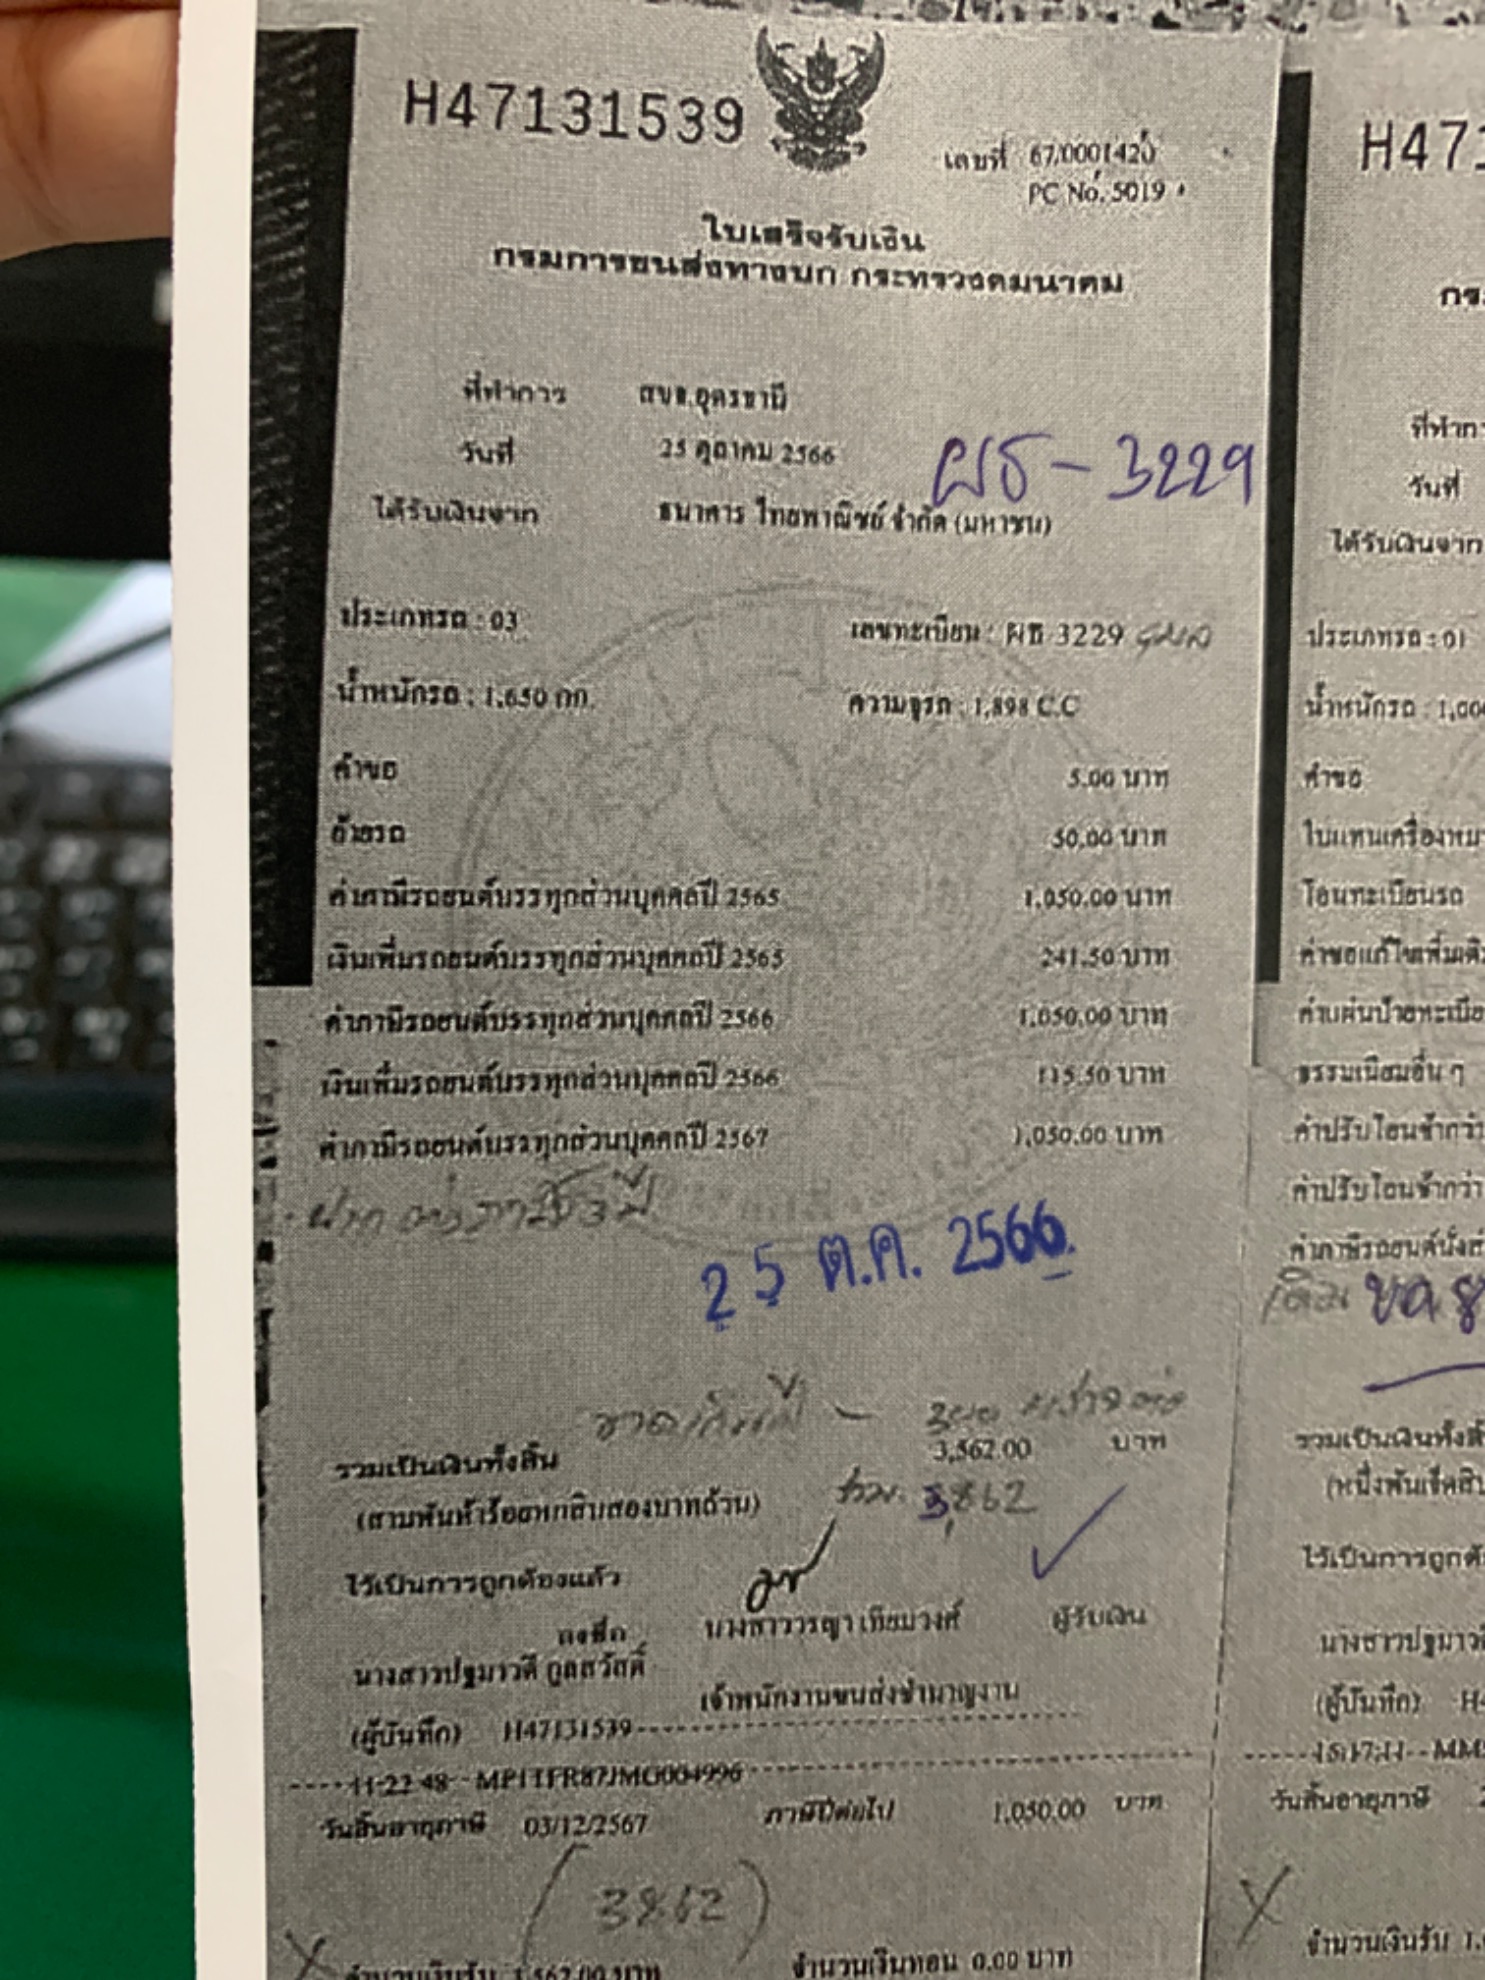 H47131539
เลขที่ 67/0001420
PC No. 5019
ใบเสร็จรับเงิน
กรมการขนส่งทางบก กระทรวงคมนาคม
ที่ทำการ สขจ.อุดรธานี
วันที่ 25 ตุลาคม 2566
ผธ - 3229
ได้รับเงินจาก ธนาคาร ไทยพาณิชย์ จำกัด (มหาชน)
ประเภทรถ : 03 เลขทะเบียน : ผธ 3229
น้ำหนักรถ : 1,650 กก. ความจุรถ : 1,898 C.C
คำขอ 5.00 บาท
ย้ายรถ 50.00 บาท
ค่าภาษีรถยนต์บรรทุกส่วนบุคคลปี 2565 1,050.00 บาท
เงินเพิ่มรถยนต์บรรทุกส่วนบุคคลปี 2565 241.50 บาท
ค่าภาษีรถยนต์บรรทุกส่วนบุคคลปี 2566 1,050.00 บาท
เงินเพิ่มรถยนต์บรรทุกส่วนบุคคลปี 2566 115.50 บาท
ค่าภาษีรถยนต์บรรทุกส่วนบุคคลปี 2567 1,050.00 บาท
25 ต.ค. 2566
รวมเป็นเงินทั้งสิ้น 3,562.00 บาท
(สามพันห้าร้อยหกสิบสองบาทถ้วน) รวม 3,862
ไว้เป็นการถูกต้องแล้ว
ลงชื่อ นางสาววรญา เทียบวงศ์ ผู้รับเงิน
นางสาวปฐมาวดี กูลสวัสดิ์
เจ้าพนักงานขนส่งชำนาญงาน
(ผู้บันทึก) H47131539
11:22:48 MP1TFR87JMG004996
วันสิ้นอายุภาษี 03/12/2567 ภาษีปีต่อไป 1,050.00 บาท
(3862)
จำนวนเงินรับ 3,562.00 บาท จำนวนเงินทอน 0.00 บาท
H471
ที่ทำกา
วันที่
ได้รับเงินจาก
ประเภทรถ : 01
น้ำหนักรถ : 1,00
คำขอ
ใบแทนเครื่องหม
โอนทะเบียนรถ
ค่าขอแก้ไขเพิ่มเติ
ค่าแผ่นป้ายทะเบีย
ธรรมเนียมอื่น ๆ
ค่าปรับโอนช้ากว่า
ค่าปรับโอนช้ากว่า
ค่าภาษีรถยนต์นั่งส่
รวมเป็นเงินทั้งสิ้
(หนึ่งพันเจ็ดสิบ
ไว้เป็นการถูกต้
นางสาวปฐมาวดี
(ผู้บันทึก) H4
15:17:11 MM
วันสิ้นอายุภาษี 2
จำนวนเงินรับ 1,